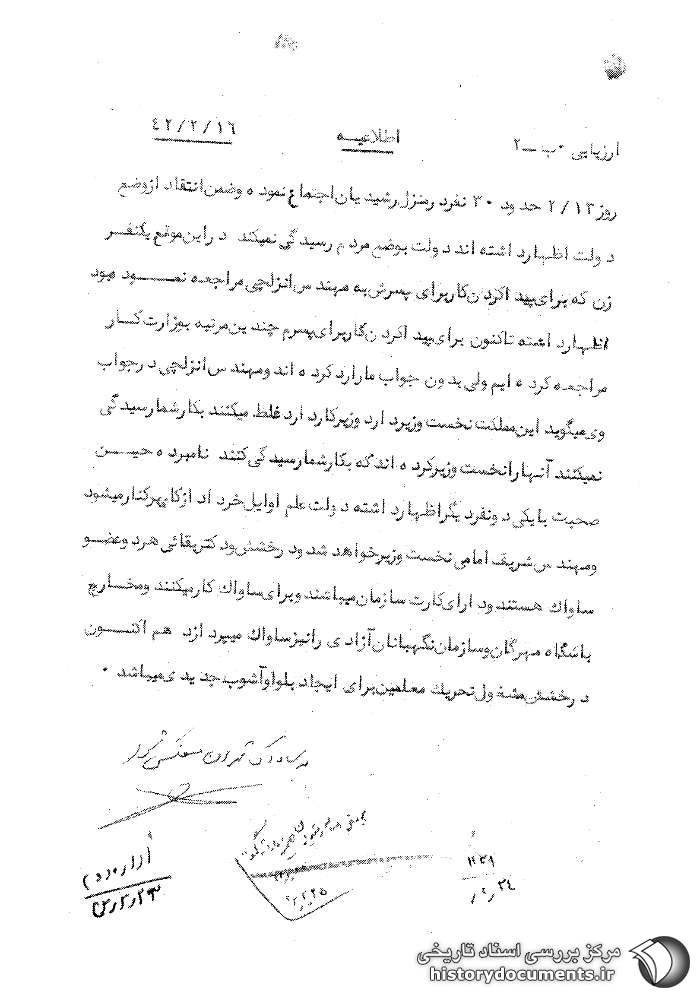 ارزیابی ۰ب ــ ۲
اطلاعیـــه
٤٢/٢/١٦
روز ٢/١٣ حدود ٣٠ نفر در منزل رشیدیان اجتماع نموده و ضمن انتقاد از وضع
دولت اظهار داشته اند دولت بوضع مردم رسیدگی نمیکند در این موقع یکنفر
زن که برای پیدا کردن کار برای پسرش به مهندس انزلچی مراجعه نمـــود بود
اظهار داشته تاکنون برای پیدا کردن کار برای پسرم چندین مرتبه بوزارت کـــار
مراجعه کرده ایم ولی بدون جواب ما را رد کرده اند و مهندس انزلچی در جواب
وی میگوید این مملکت نخست وزیر دارد وزیر کار دارد غلط میکنند بکار شما رسیدگی
نمیکنند آنها را نخست وزیر کرده اند که بکار شما رسیدگی کنند نامبرده حیـــن
صحبت با یکی دو نفر دیگر اظهار داشته دولت علم اوایل خرداد از کار برکنار میشود
و مهندس شریف امامی نخست وزیر خواهد شد و درخشش و دکتر بقائی هر دو عضـــو
ساواك هستند و دارای کارت سازمان میباشند و برای ساواك کار میکنند و مخـــارج
باشگاه مهرگان و سازمان نگهبانان آزادی را نیز ساواك میپردازد هم اکنـــون
درخشش مشغول تحریك معلمین برای ایجاد بلوا و آشوب جدیدی میباشد ۰
۱۱۳۹
مرکز بررسی اسناد تاریخی
historydocuments.ir